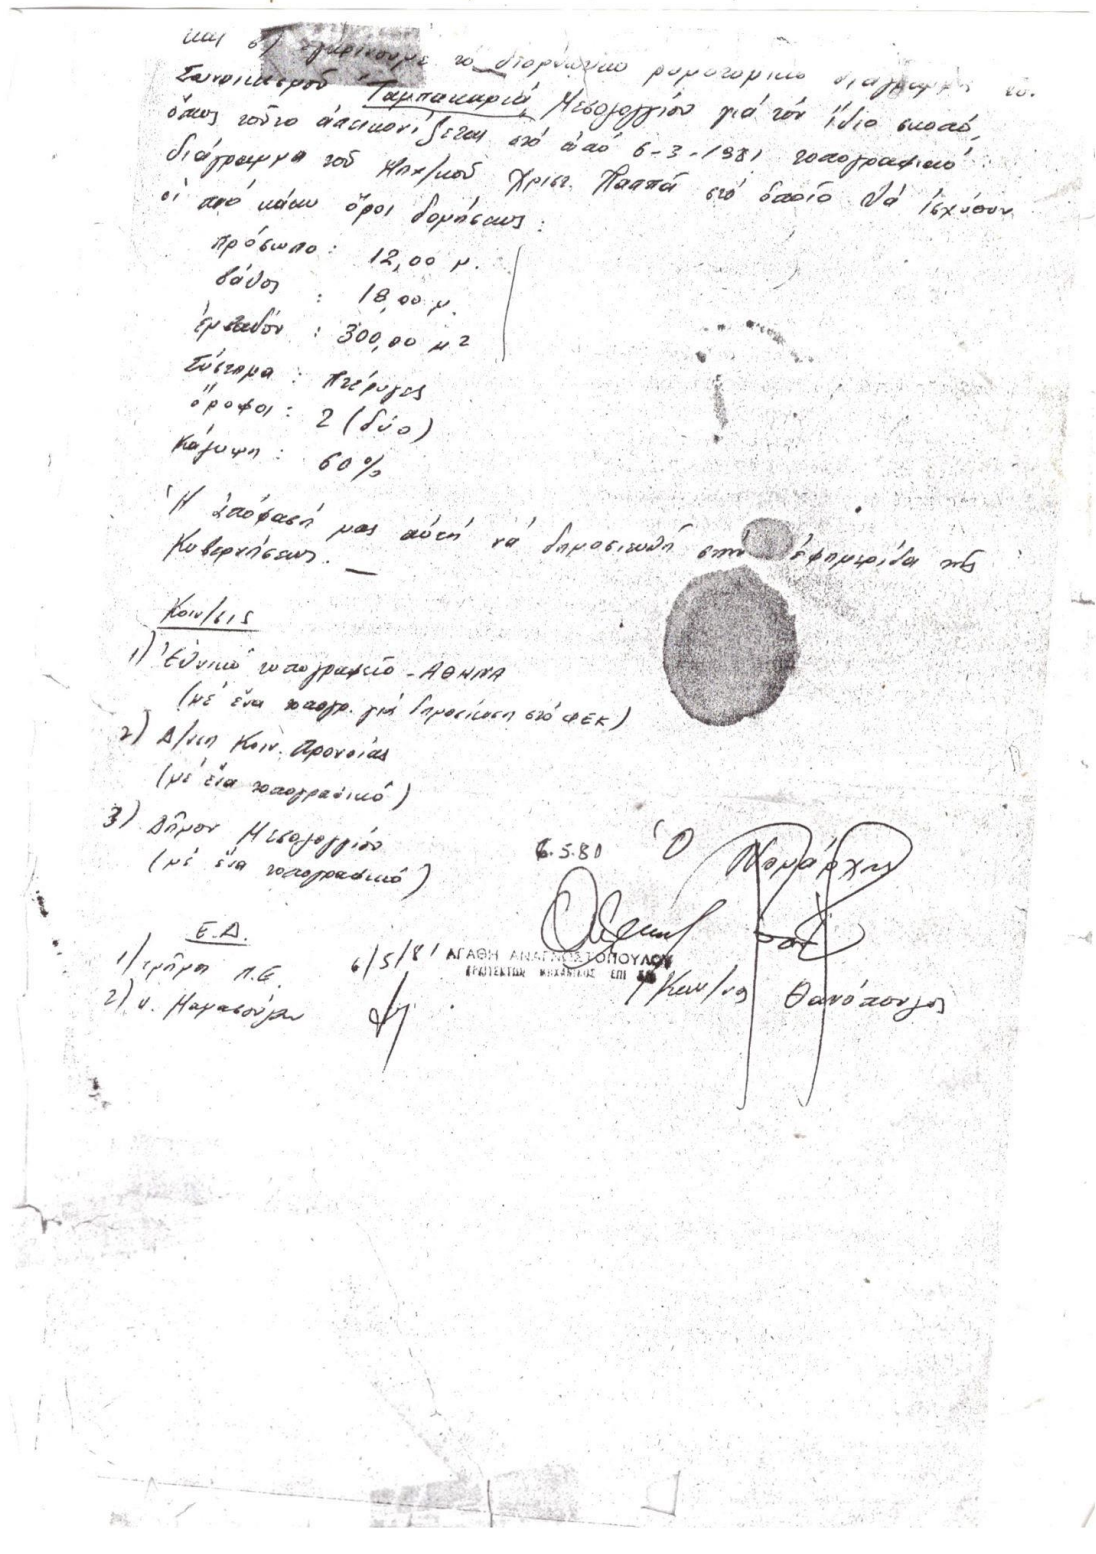 και β) ἐγκρίνουμε τό διορθωτικό ρυμοτομικό διάγραμμα τοῦ
Συνοικισμοῦ Ταμπακαριά Μεσολογγίου γιά τόν ἴδιο σκοπό,
ὅπως τοῦτο ἀπεικονίζεται στό ἀπό 6-3-1981 τοπογραφικό
διάγραμμα τοῦ Μηχ/κοῦ Χριστ. Παππά στό ὁποῖο θά ἰσχύουν
οἱ πιό κάτω ὅροι δομήσεως :
Πρόσωπο : 12,00 μ.
Βάθος : 18,00 μ.
Ἐμβαδόν : 300,00 μ2
Σύστημα : Πτέρυγες
Ὄροφοι : 2 (δύο)
Κάλυψη : 60%
Ἡ ἀπόφασή μας αὐτή νά δημοσιευθῆ στήν ἐφημερίδα τῆς
Κυβερνήσεως. —
Κοιν/σις
1) Ἐθνικό τυπογραφεῖο - ΑΘΗΝΑ
(μέ ἕνα τοπογρ. γιά δημοσίευση στό ΦΕΚ)
2) Δ/νση Κοιν. Προνοίας
(μέ ἕνα τοπογραφικό)
3) Δῆμον Μεσολογγίου
(μέ ἕνα τοπογραφικό)
6.5.80 Ὁ Νομάρχης
Ε.Δ.
1) Τμῆμα Π.Ε. 6/5/81
ΑΓΑΘΗ ΑΝΑΓΝΩΣΤΟΠΟΥΛΟΥ
ΑΡΧΙΤΕΚΤΩΝ ΜΗΧΑΝΙΚΟΣ ΕΠΙ
Κων/νος Θανόπουλος
2) υ.